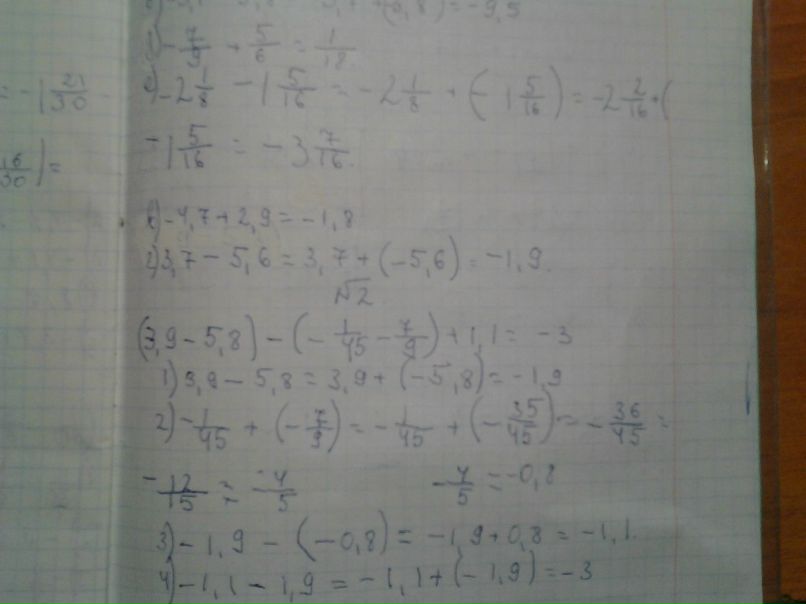 = -1 21/30
16/30) =
-7/9 + 5/6 = 1/18
-2 1/8 - 1 5/16 = -2 1/8 + (-1 5/16) = -2 2/16 + (
-1 5/16 = -3 7/16.
-4,7 + 2,9 = -1,8
3,7 - 5,6 = 3,7 + (-5,6) = -1,9.
√2
(3,9 - 5,8) - (-1/45 - 7/9) + 1,1 = -3
1) 3,9 - 5,8 = 3,9 + (-5,8) = -1,9
2) -1/45 + (-7/9) = -1/45 + (-35/45) = -36/45 =
-12/15 = -4/5 -4/5 = -0,8
3) -1,9 - (-0,8) = -1,9 + 0,8 = -1,1.
4) -1,1 - 1,9 = -1,1 + (-1,9) = -3